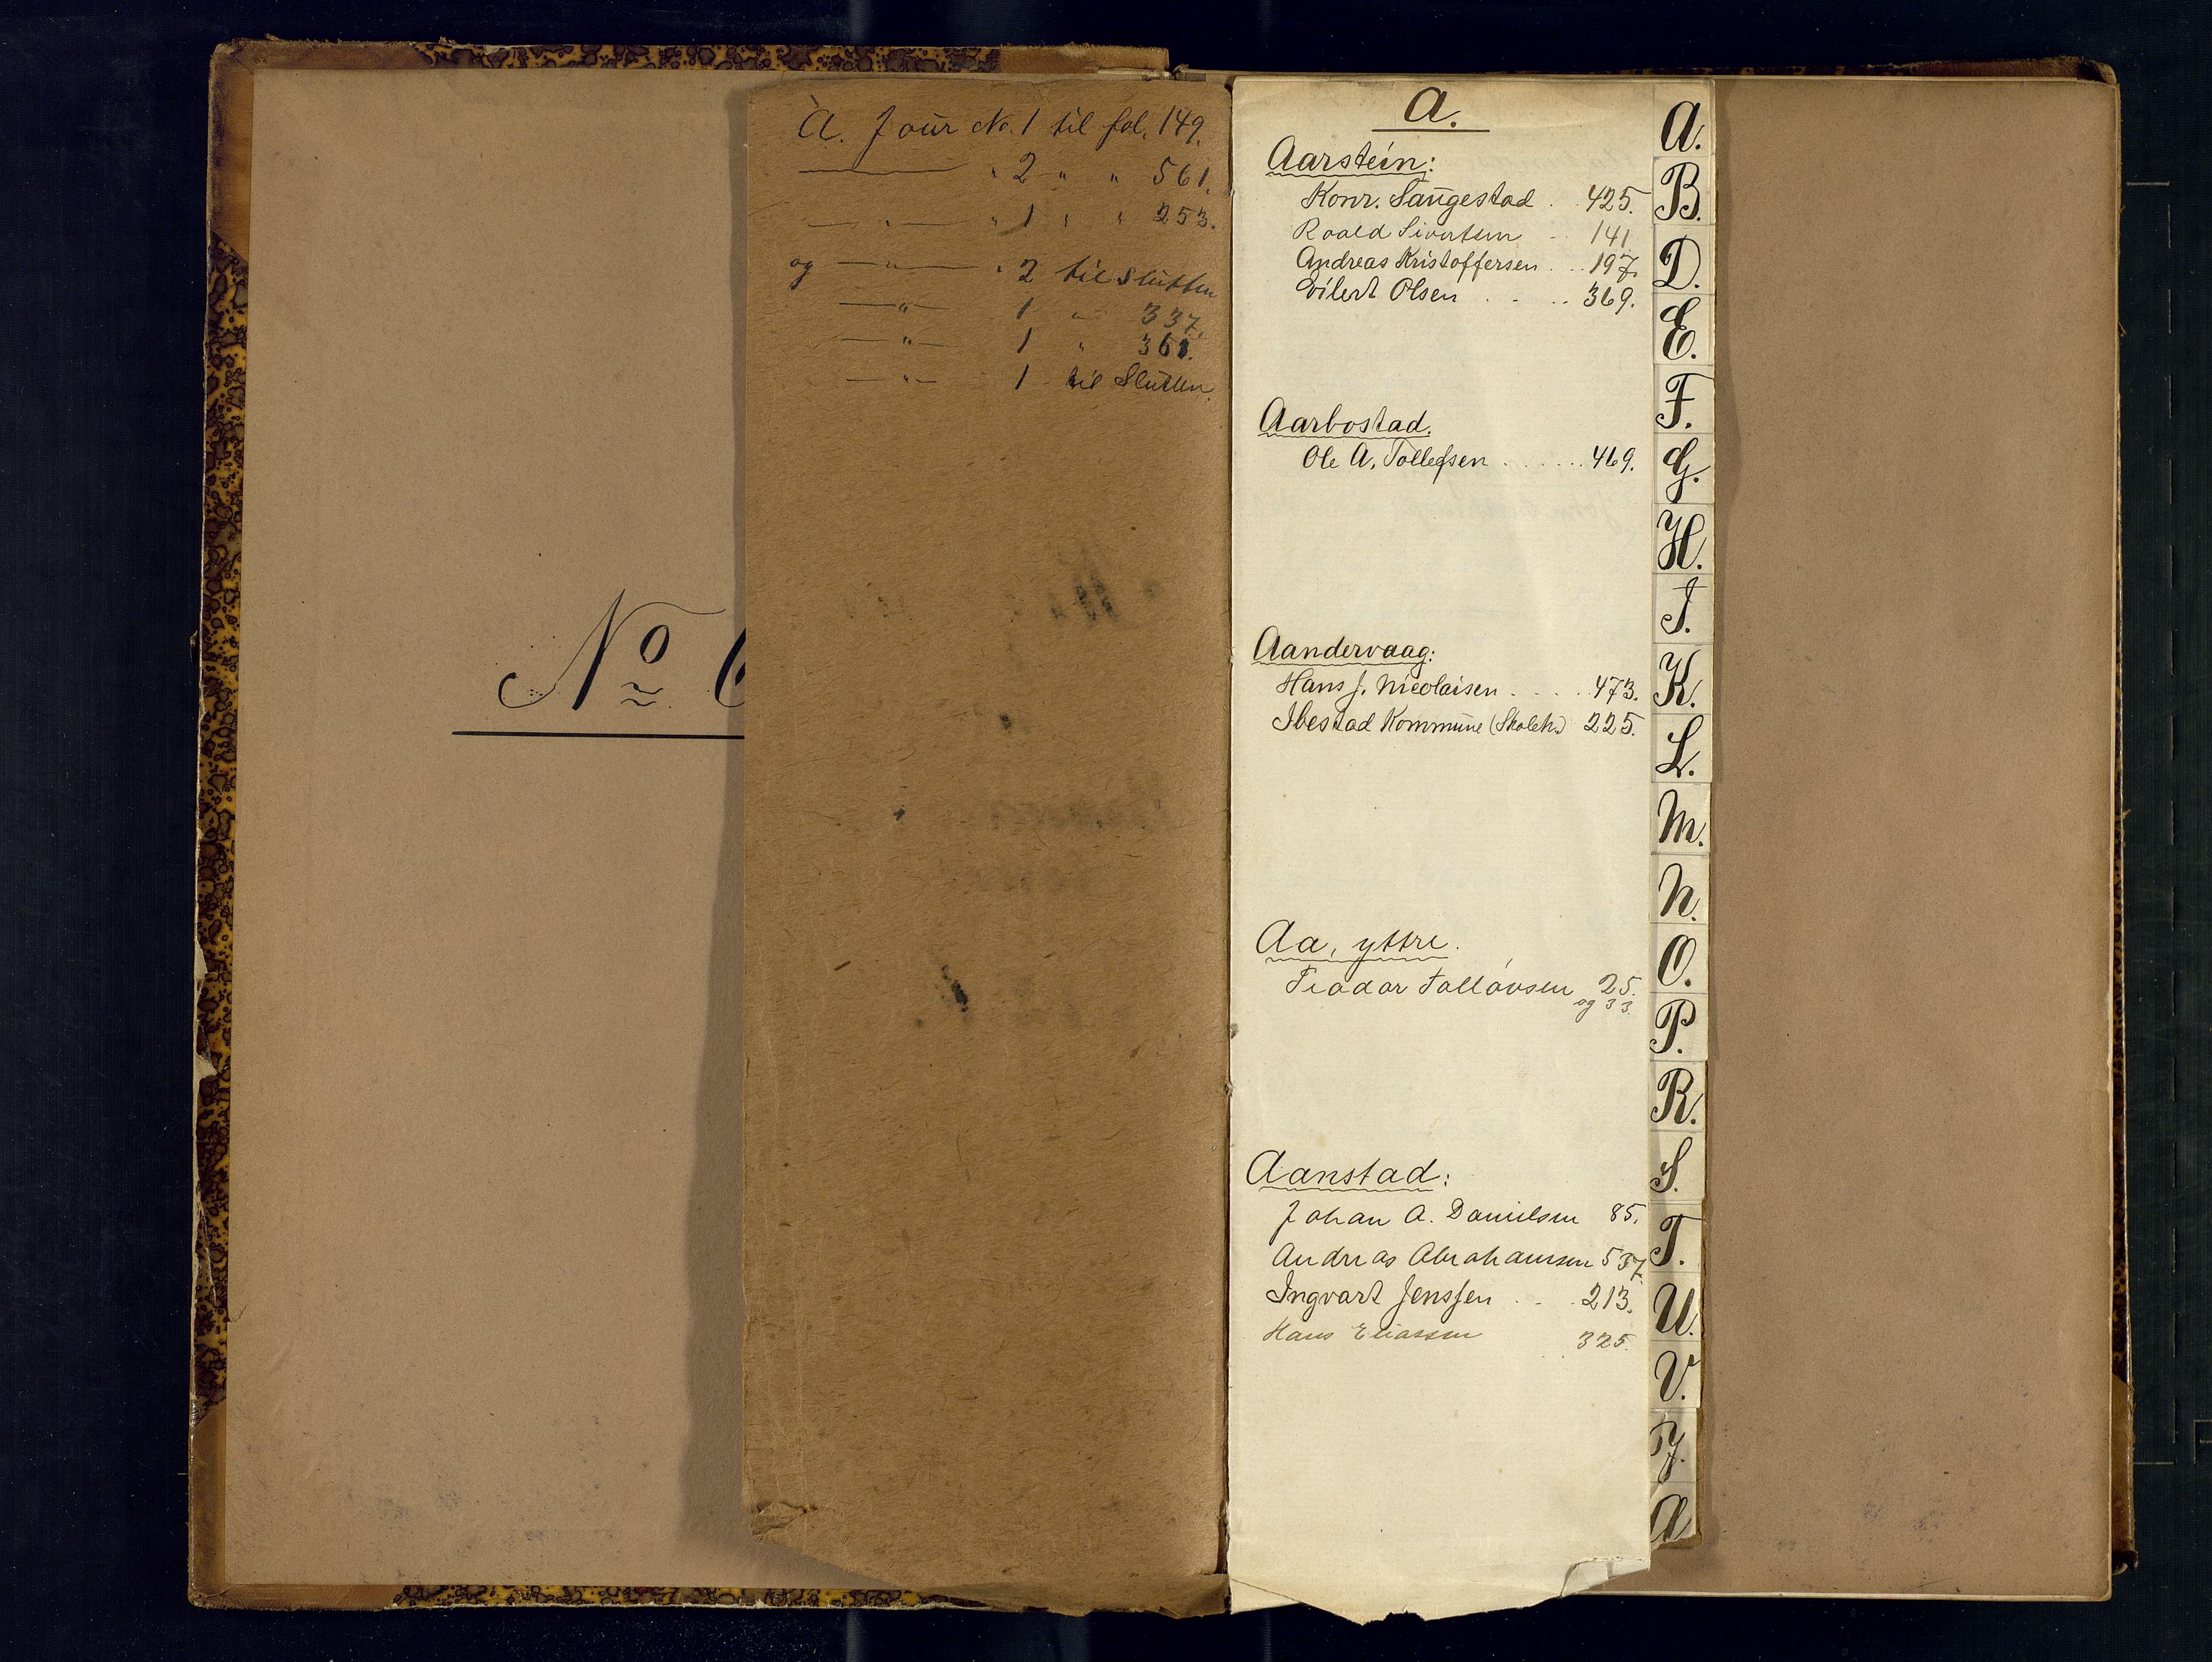 No
A. Jour No. 1 til fol. 149.
" 2 " " 561.
" " 1 " " 253.
og " " 2 til Slutten
" 1 " 337.
" 1 " 361.
" 1 til Slutten.
A.
Aarstein:
Konr. Saugestad . . 425.
Roald Sivertsen . . 141
Andreas Kristoffersen . . 197.
Eilert Olsen . . . . 369.
Aarbostad.
Ole A. Tollefsen . . . . . . 469.
Aandervaag:
Hans J. Nicolaisen . . . . 473.
Ibestad Kommune (Skoleh.) 225.
Aa, yttre.
Teodor Tollovsen 25.
og 33.
Aanstad:
Johan A. Danielsen 85.
Andreas Abrahamsen 537.
Ingvart Jenssen . . . 213.
Hans Eliassen 325.
A.
B.
D.
E.
F.
G.
H.
I.
K.
L.
M.
N.
O.
P.
R.
S.
T.
U.
V.
Y.